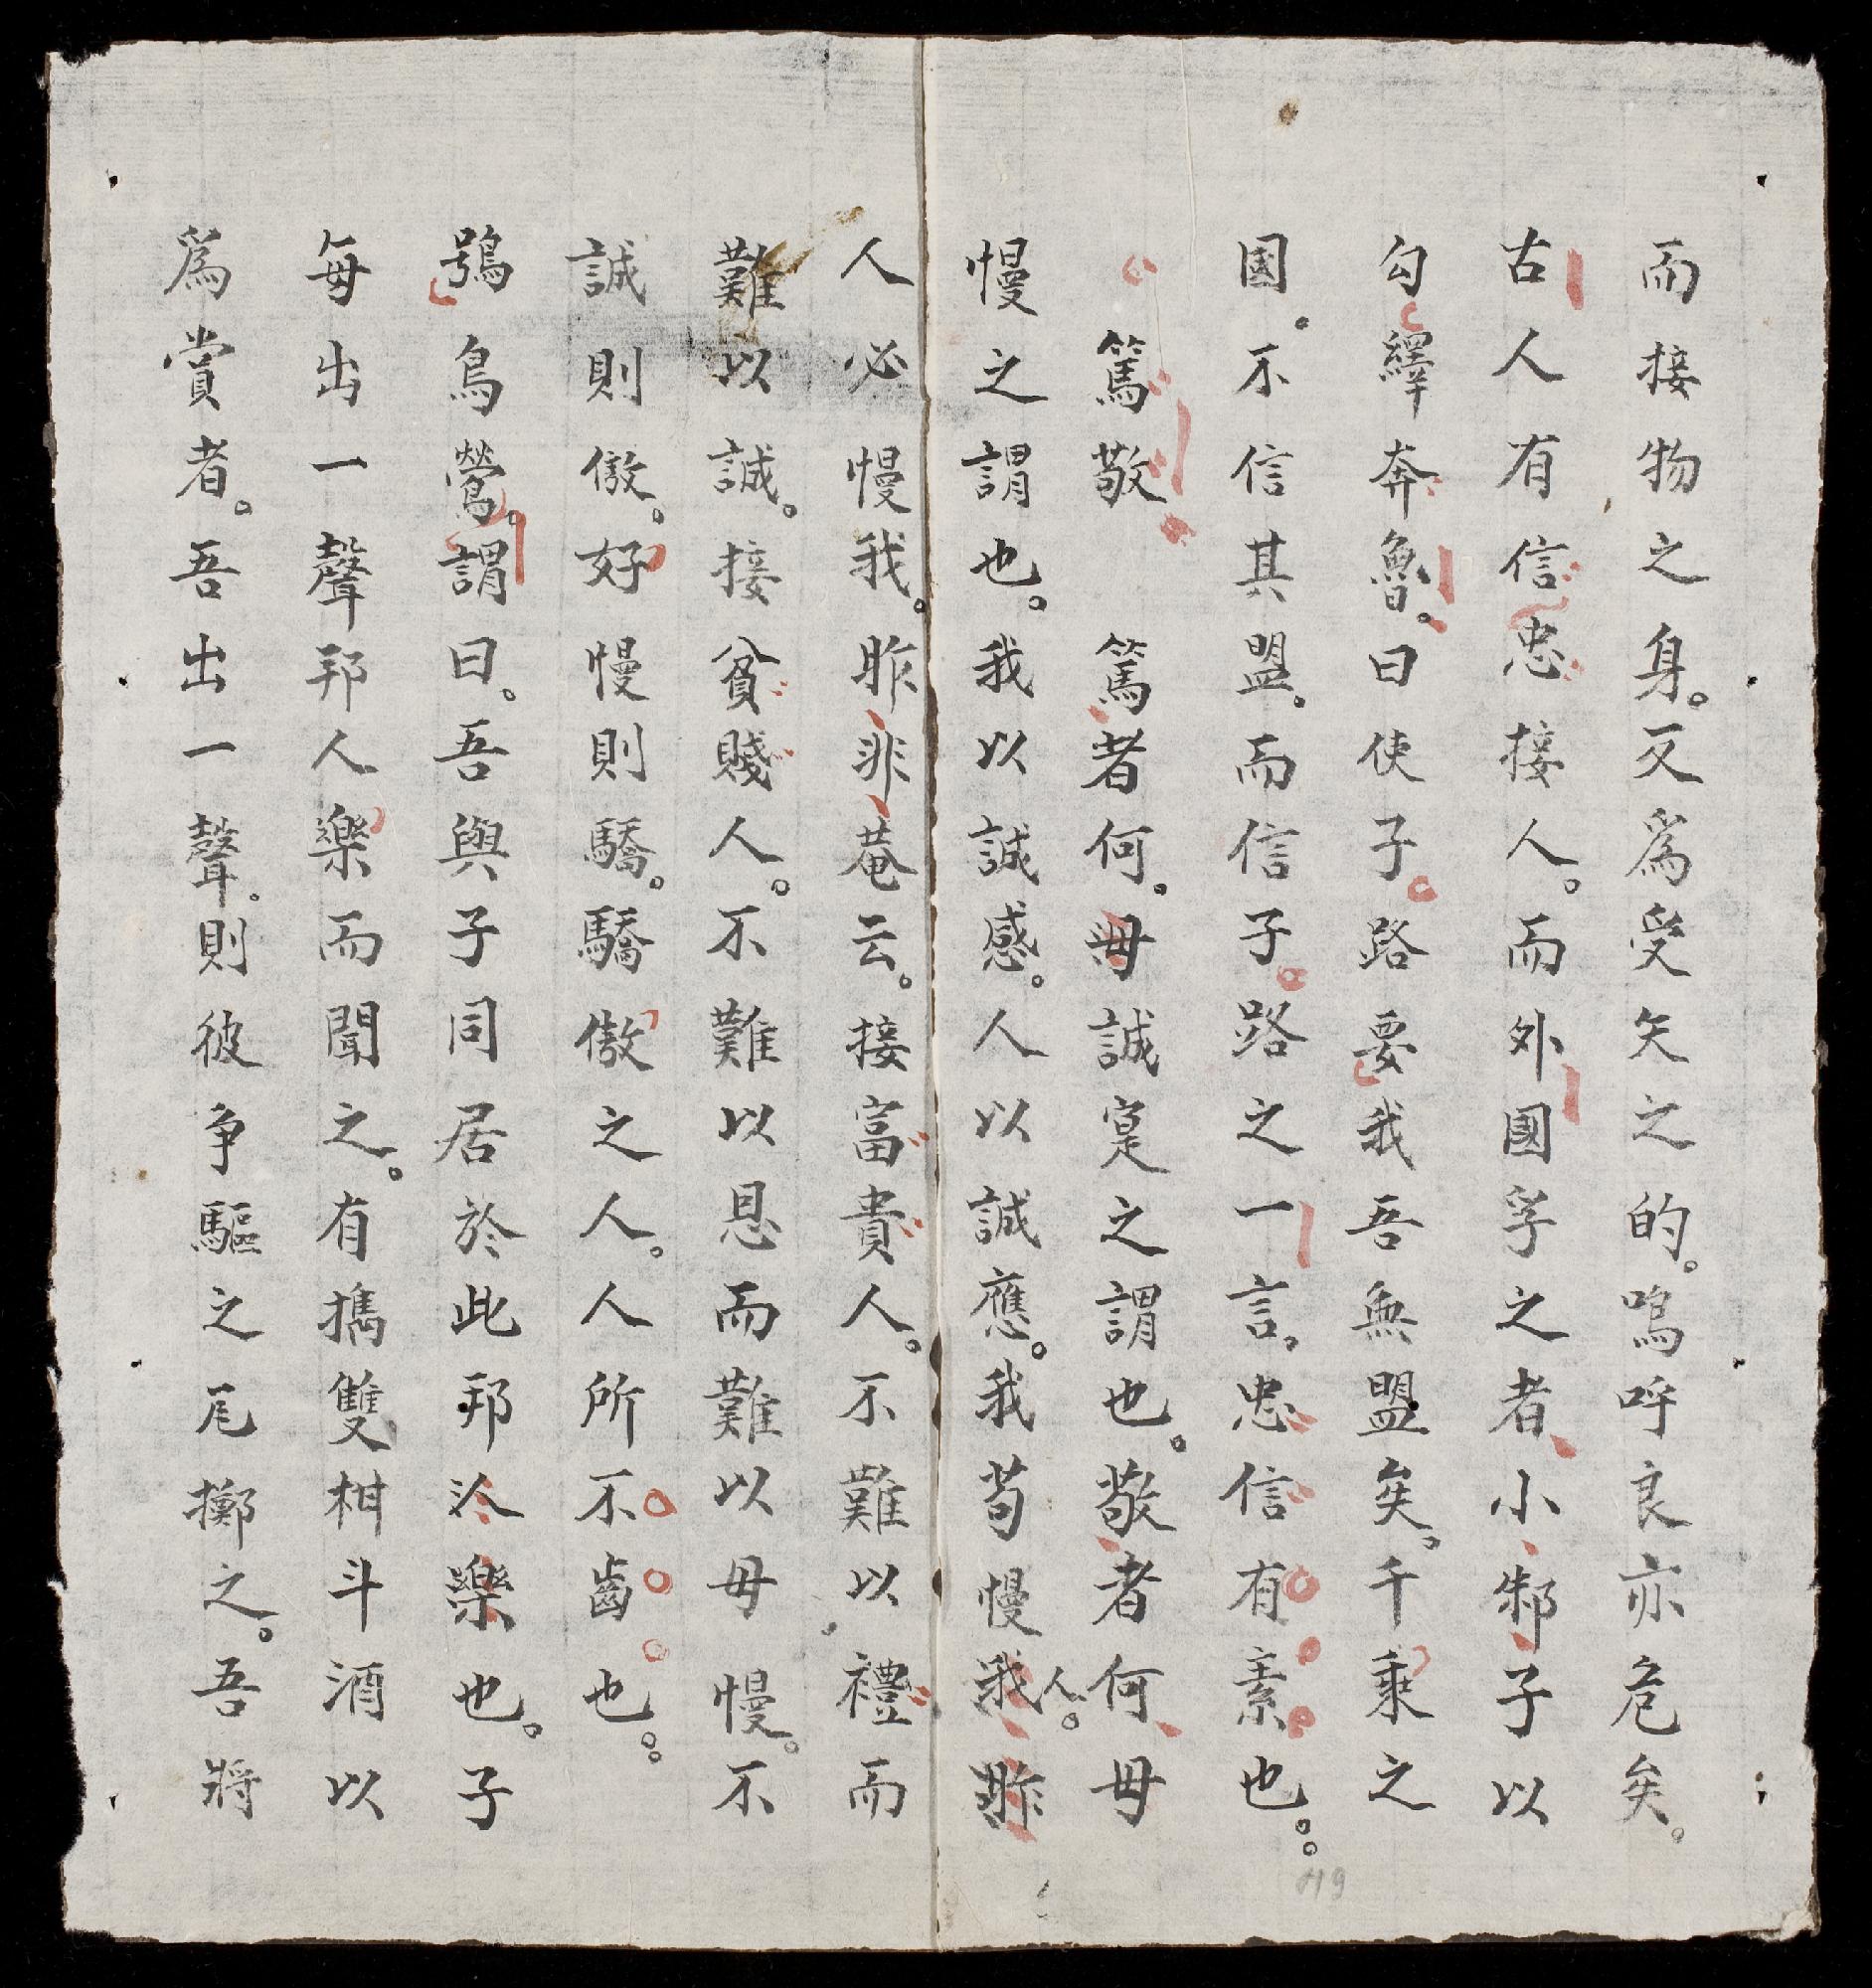 而接物之身。又為受矢之的。嗚呼良亦危矣。
古人有信忠接人。而外國孚之者、小邾子以
勾繹奔魯。曰使子路要我吾無盟矣。千乘之
国。不信其盟。而信子路之一言。忠信有素也。
篤敬　篤者何。毋誠寔之謂也。敬者何毋
慢之謂也。我以誠感。人以誠應。我苟慢我人。
人必慢我。昨非菴云。接富貴人。不難以禮而
難以誠。接貧賤人。不難以恩而難以毋慢。不
誠則傲。好慢則驕。驕傲之人。人所不齒也。
鴞鳥鶯。謂曰。吾與子同居於此邦人樂也。子
每出一聲邦人樂而聞之。有攜雙柑斗酒以
為賞者。吾出一聲。則彼争驅之瓦擲之。吾將
49